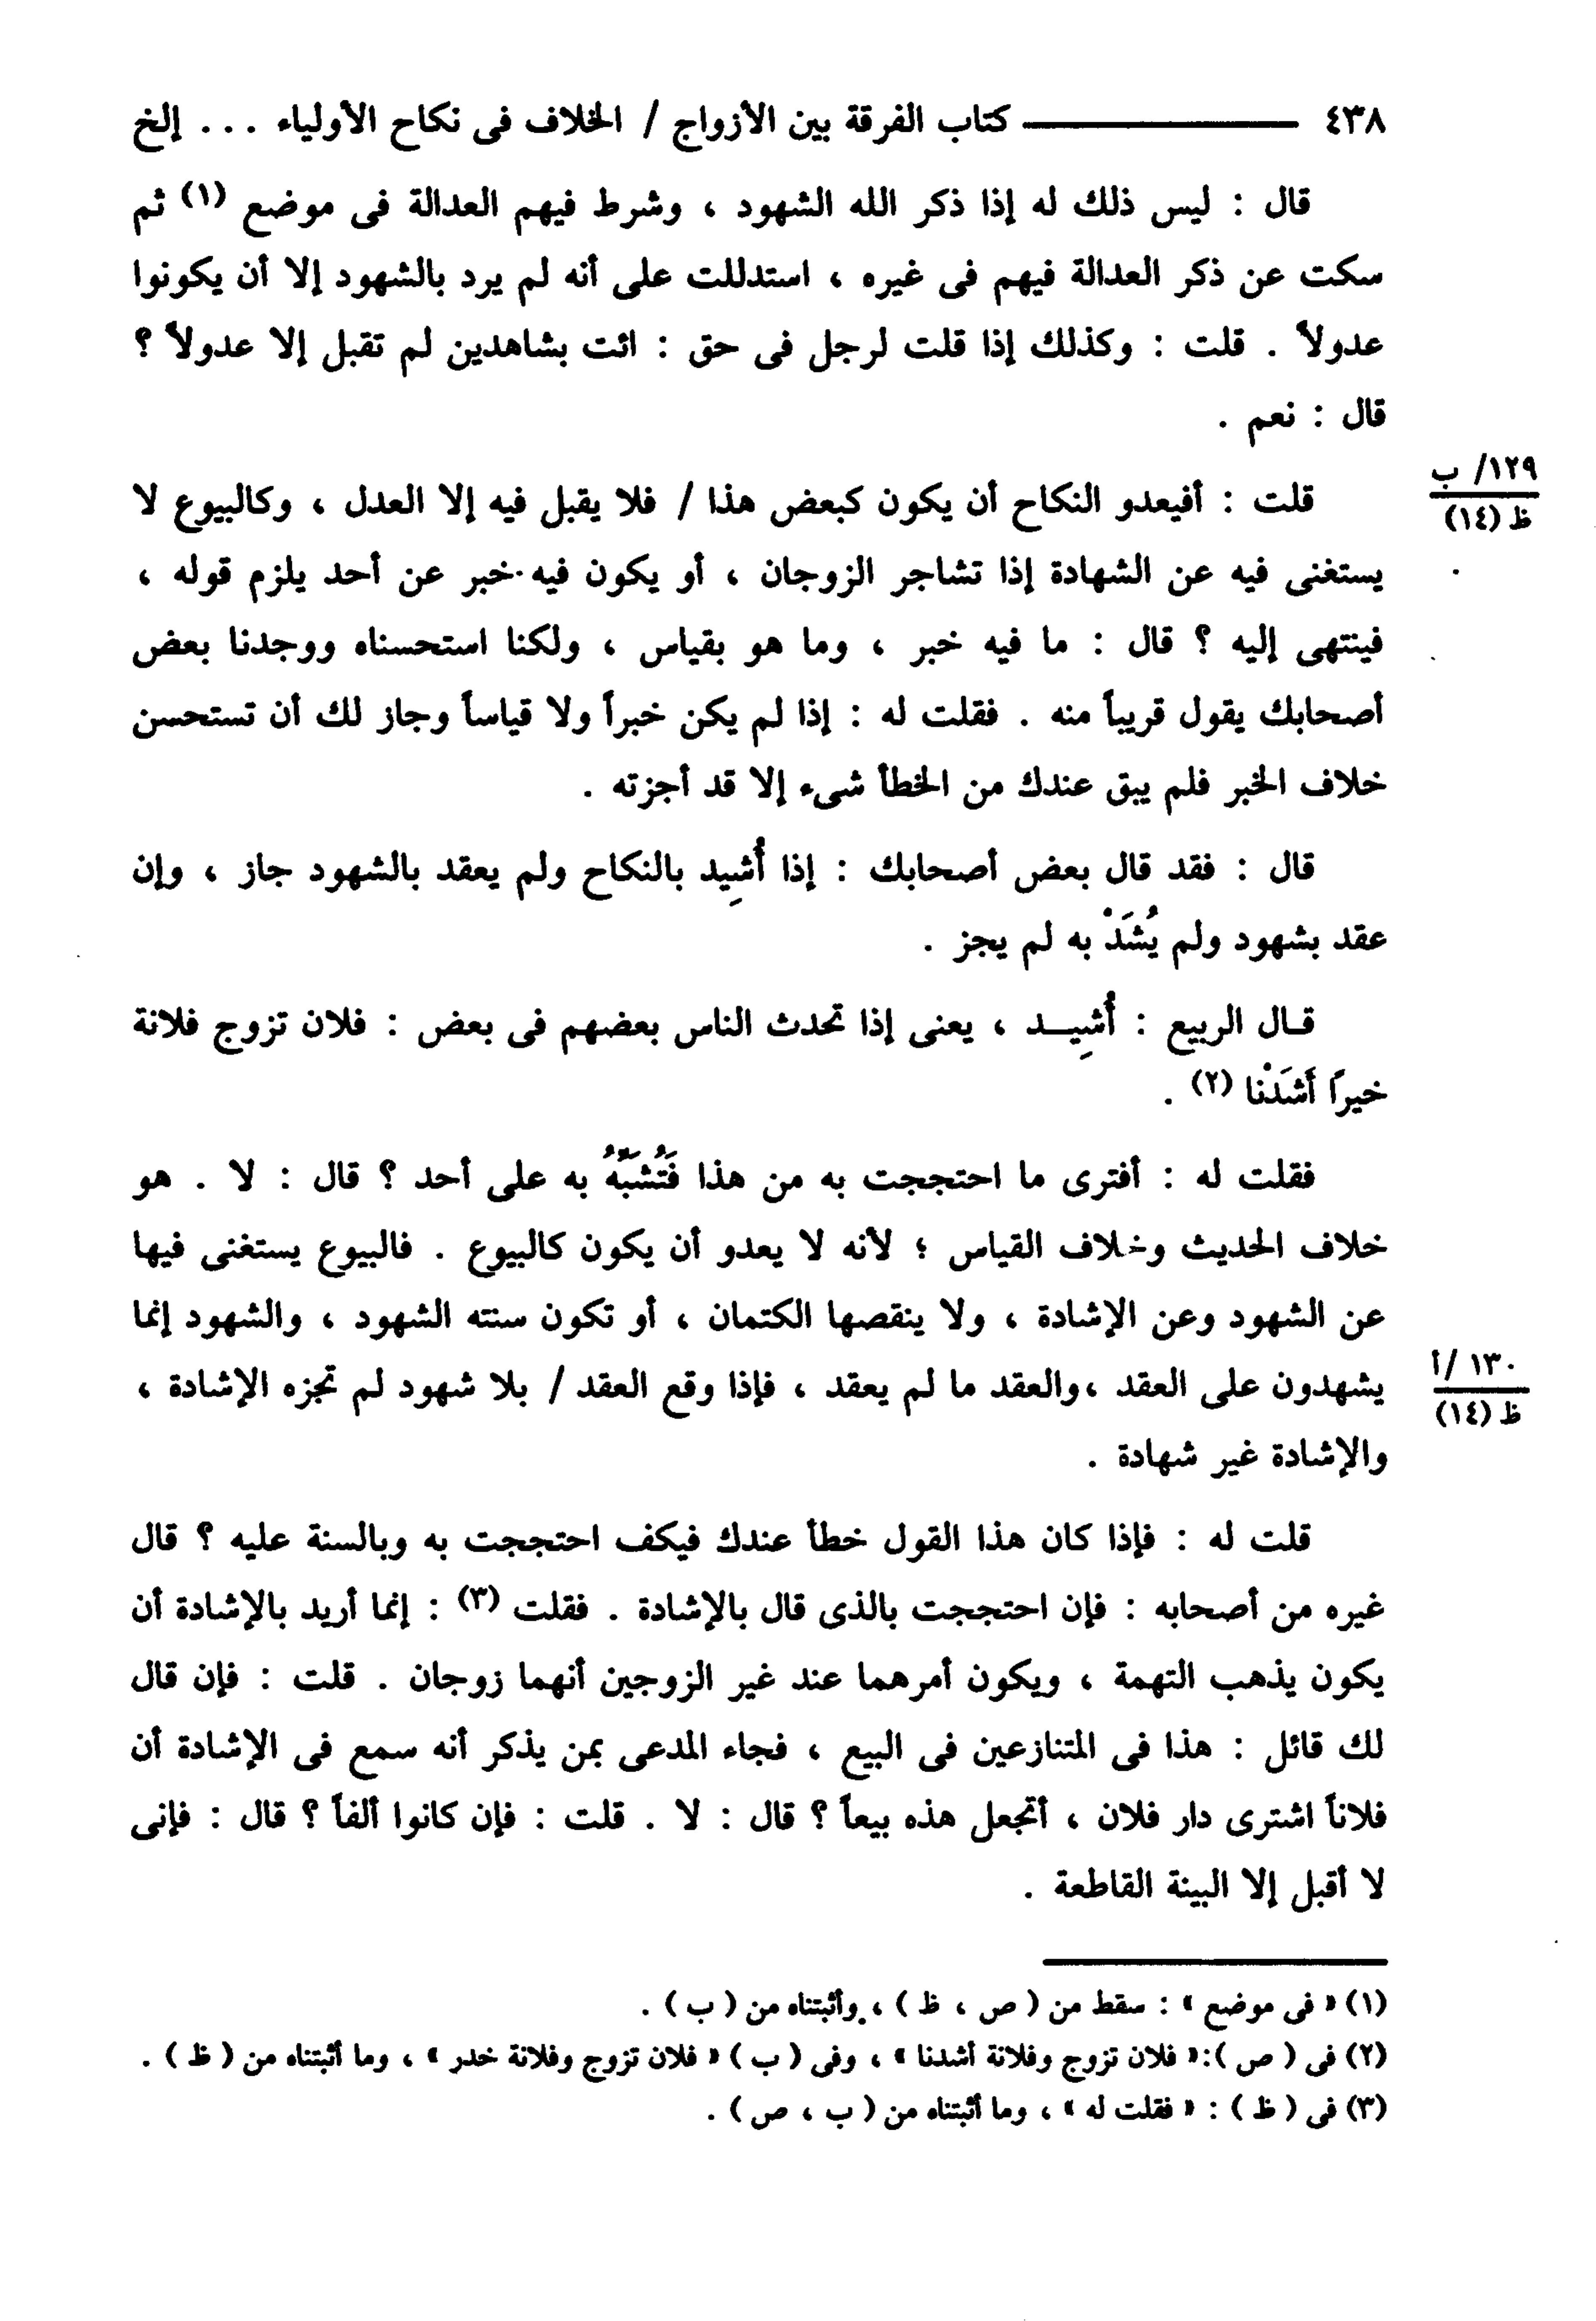 ٤٣٨ ــــــــــــــــــ كتاب الفرقة بين الأزواج / الخلاف فى نكاح الأولياء ... إلخ
قال : ليس ذلك له إذا ذكر الله الشهود ، وشرط فيهم العدالة فى موضع (١) ثم
سكت عن ذكر العدالة فيهم فى غيره ، استدللت على أنه لم يرد بالشهود إلا أن يكونوا
عدولاً . قلت : وكذلك إذا قلت لرجل فى حق : ائت بشاهدين لم تقبل إلا عدولاً ؟
قال : نعم .
١٢٩/ ب
ظ (١٤)
قلت : أفيعدو النكاح أن يكون كبعض هذا / فلا يقبل فيه إلا العدل ، وكالبيوع لا
يستغنى فيه عن الشهادة إذا تشاجر الزوجان ، أو يكون فيه خبر عن أحد يلزم قوله ،
فينتهى إليه ؟ قال : ما فيه خبر ، وما هو بقياس ، ولكنا استحسناه ووجدنا بعض
أصحابك يقول قريباً منه . فقلت له : إذا لم يكن خبراً ولا قياساً وجاز لك أن تستحسن
خلاف الخبر فلم يبق عندك من الخطأ شىء إلا قد أجزته .
قال : فقد قال بعض أصحابك : إذا أُشِيد بالنكاح ولم يعقد بالشهود جاز ، وإن
عقد بشهود ولم يُشَدْ به لم يجز .
قـال الربيع : أُشِيــد ، يعنى إذا تحدث الناس بعضهم فى بعض : فلان تزوج فلانة
خيراً أَشَدْنا (٢) .
فقلت له : أفترى ما احتججت به من هذا فَتُشَبِّهُ به على أحد ؟ قال : لا . هو
خلاف الحديث وخلاف القياس ؛ لأنه لا يعدو أن يكون كالبيوع . فالبيوع يستغنى فيها
عن الشهود وعن الإشادة ، ولا ينقصها الكتمان ، أو تكون سنته الشهود ، والشهود إنما
يشهدون على العقد ،والعقد ما لم يعقد ، فإذا وقع العقد / بلا شهود لم تجزه الإشادة ،
١٣٠ /أ
ظ (١٤)
والإشادة غير شهادة .
قلت له : فإذا كان هذا القول خطأ عندك فيكف احتججت به وبالسنة عليه ؟ قال
غيره من أصحابه : فإن احتججت بالذى قال بالإشادة . فقلت (٣) : إنما أريد بالإشادة أن
يكون يذهب التهمة ، ويكون أمرهما عند غير الزوجين أنهما زوجان . قلت : فإن قال
لك قائل : هذا فى المتنازعين فى البيع ، فجاء المدعى بمن يذكر أنه سمع فى الإشادة أن
فلاناً اشترى دار فلان ، أتجعل هذه بيعاً ؟ قال : لا . قلت : فإن كانوا ألفاً ؟ قال : فإنى
لا أقبل إلا البينة القاطعة .
(١) « فى موضع » : سقط من ( ص ، ظ ) ، وأثبتناه من ( ب ) .
(٢) فى ( ص ):« فلان تزوج وفلانة أشدنا » ، وفى ( ب ) « فلان تزوج وفلانة خدر » ، وما أثبتناه من ( ظ ) .
(٣) فى ( ظ ) : « فقلت له » ، وما أثبتناه من ( ب ، ص ) .